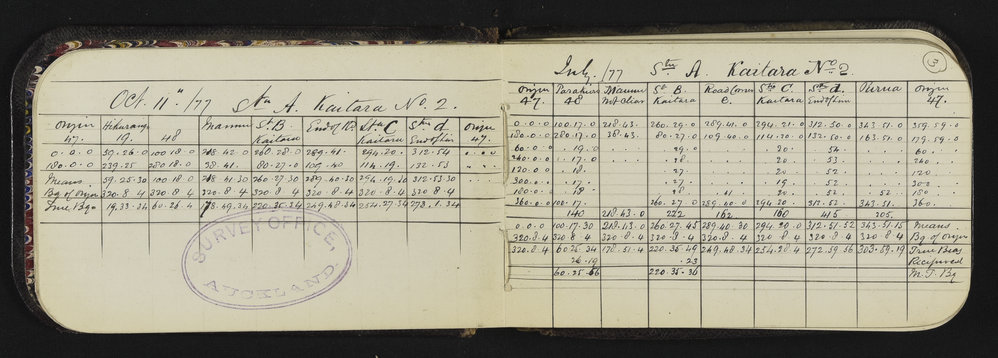 Oct. 11th /77 Stn A. Kaitara No. 2.
Origin Hikurangi Maunu St B End of Rd Stn C Stn d. Origin
47. 19. 48 Kaitara Kaitara End of line 47.
0.0.0 59.26.0 100.18.0 218.42.0 260.28.0 289.41. 294.20. 312.54
180.0.0 239.25 280.18.0 38.41 80.27.0 109.40 114.19. 132.53
Means 59.25.30 100.18.0 218.41.30 260.27.30 289.40.30 294.19.30 312.53.30
Bg of Orgn 320.8.4 320.8.4 320.8.4 320.8.4 320.8.4 320.8.4 320.8.4
True Bgs 19.33.34 60.26.4 178.49.34 220.35.34 249.48.34 254.27.34 273.1.34
SURVEY OFFICE,
AUCKLAND.
July. /77 Stn A. Kaitara No. 2.
3
Origin Parahaki Maunu St B. Road Corner Stn C. Stn d. Purua Origin
47. 48 Not clear Kaitara e. Kaitara End of line 47.
0.0.0 100.17.0 218.43. 260.29.0 289.41.0 294.21.0 312.50 343.51.0 359.59.0
180.0.0 280.17.0 38.43. 80.27.0 109.40.0 114.20.0 132.50.0 163.51.0 179.59.0
60.0.0 .19.0 29.0 20. 54. 60.
240.0.0 .17.0 28. 20. 53. 240.
120.0.0 .18 27. 20. 52. 120
300.0.0 .17. 27. 19. 52. 300
180.0.0 18 28. .41 20. 52. 52. 180
360.0.0 100.17. 260.27.0 289.40.0 294.20. 312.52. 343.51. 360.
140 218.43.0 222 162 160 415 205.
0.0.0 100.17.30 218.43.0 260.27.45 289.40.30 294.20.0 312.51.52 343.51.15 Means.
320.8.4 320.8.4 320.8.4 320.8.4 320.8.4 320.8.4 320.8.4 320.8.4 Bg of Origin
320.8.4 60.25.34 178.51.4 220.35.49 249.48.34 254.28.4 272.59.56 303.59.19 True Bgs
26.19 .23 Reciprocal
60.25.56 220.35.36 M.T. Bg